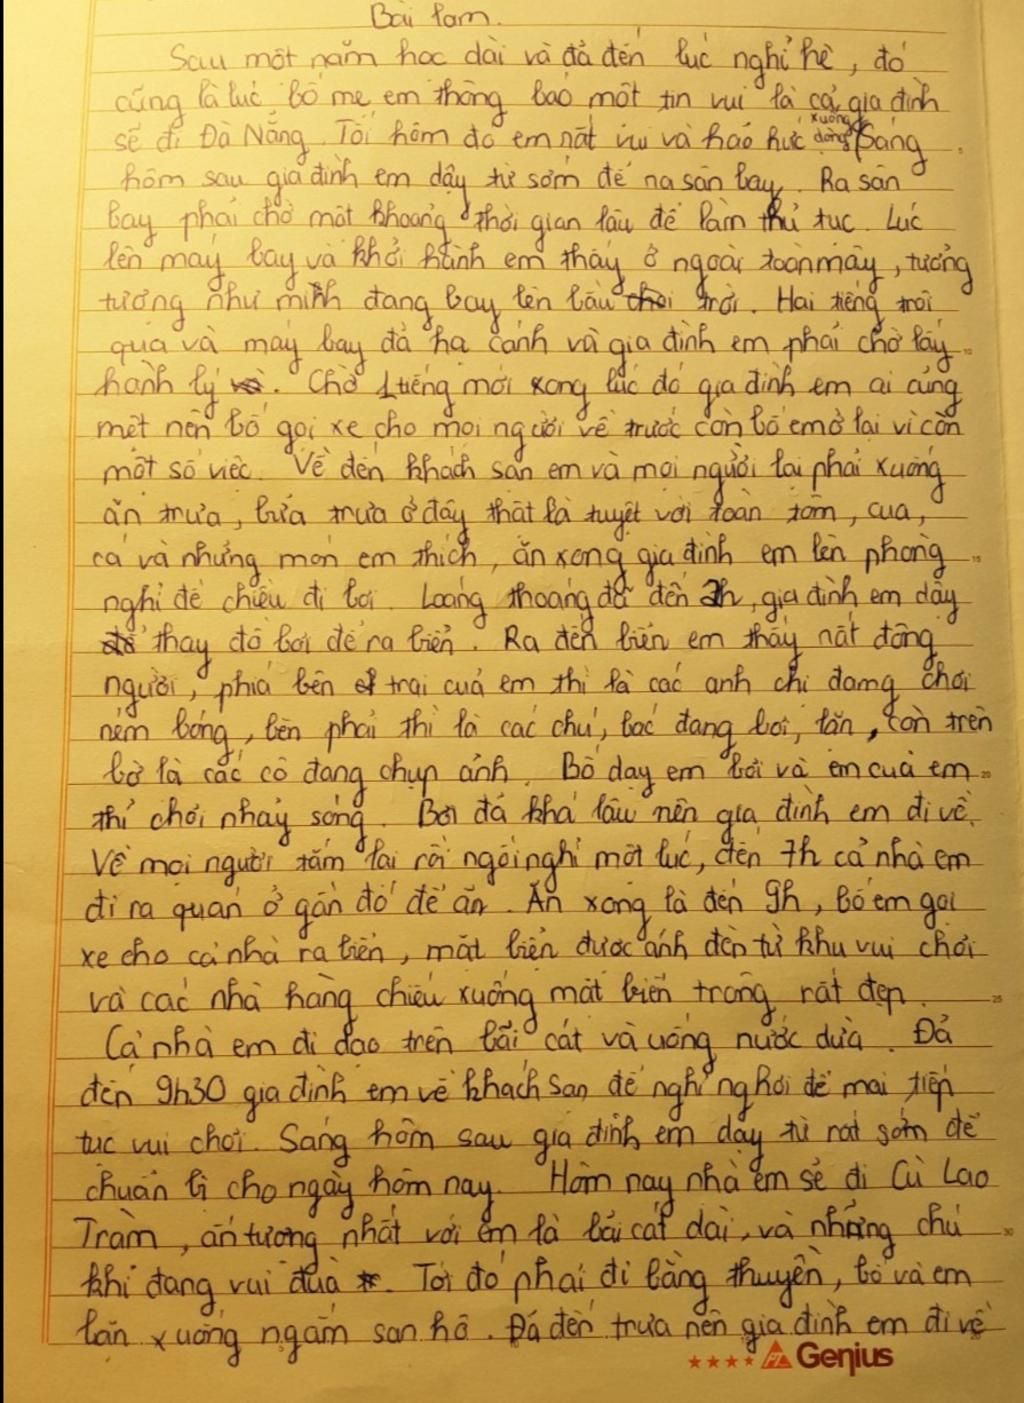 Bài làm.
Sau một năm học dài và đã đến lúc nghỉ hè, đó
cũng là lúc bố mẹ em thông báo một tin vui là cả gia đình
sẽ đi Đà Nẵng. Tối hôm đó em rất vui và háo hức xuống dòng Sáng
hôm sau gia đình em dậy từ sớm để ra sân bay. Ra sân
bay phải chờ một khoảng thời gian lâu để làm thủ tục. Lúc
lên máy bay và khởi hành em thấy ở ngoài toàn mây, tưởng
tượng như mình đang bay lên bầu trời. Hai tiếng trôi
qua và máy bay đã hạ cánh và gia đình em phải chờ lấy
hành lý. Chờ 1 tiếng mới xong lúc đó gia đình em ai cũng
mệt nên bố gọi xe cho mọi người về trước còn bố em ở lại vì còn
một số việc. Về đến khách sạn em và mọi người lại phải xuống
ăn trưa, bữa trưa ở đây thật là tuyệt vời toàn tôm, cua,
cá và những món em thích, ăn xong gia đình em lên phòng
nghỉ để chiều đi bơi. Loáng thoáng đã đến 2h, gia đình em dậy
thay đồ bơi để ra biển. Ra đến biển em thấy nất đông
người, phía bên trái của em thì là các anh chị đang chơi
ném bóng, bên phải thì là các chú, bác đang bơi, lặn, còn trên
bờ là các cô đang chụp ảnh. Bố dạy em bơi và em của em
thì chơi nhảy sóng. Bơi đã khá lâu nên gia đình em đi về.
Về mọi người tắm lại rồi ngồi nghỉ một lúc, đến 7h cả nhà em
đi ra quán ở gần đó để ăn. Ăn xong là đến 9h, bố em gọi
xe cho cả nhà ra biển, mặt biển được ánh đèn từ khu vui chơi
và các nhà hàng chiếu xuống mặt biển trông rất đẹp.
Cả nhà em đi dạo trên bãi cát và uống nước dừa. Đã
đến 9h30 gia đình em về khách sạn để nghỉ nghơi để mai tiếp
tục vui chơi. Sáng hôm sau gia đình em dậy từ rất sớm để
chuẩn bị cho ngày hôm nay. Hôm nay nhà em sẽ đi Cù Lao
Tràm, ấn tượng nhất với em là bãi cát dài, và những chú
khỉ đang vui đùa. Tới đó phải đi bằng thuyền, bố và em
lặn xuống ngắm san hô. Đã đến trưa nên gia đình em đi về
Genius